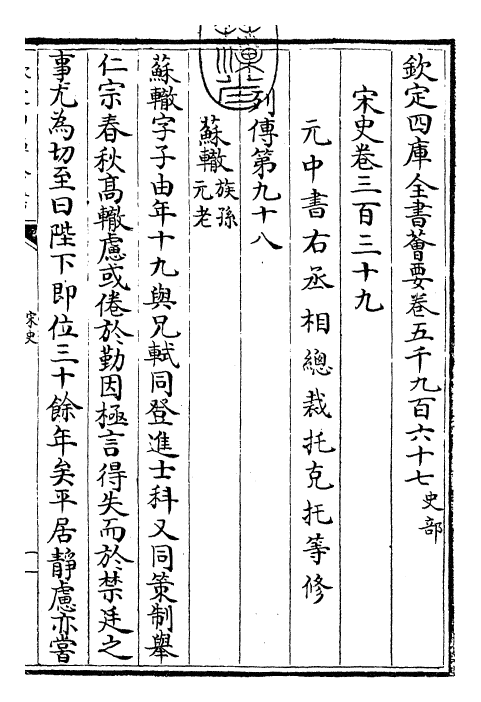 欽定四庫全書薈要卷五千九百六十七史部
宋史卷三百三十九
元中書右丞相總裁托克托等修
列傳第九十八
蘇轍族孫元老
蘇轍字子由年十九與兄軾同登進士科又同策制舉
仁宗春秋髙轍慮或倦於勤因極言得失而於禁廷之
事尤為切至曰陛下即位三十餘年矣平居静慮亦嘗
宋史
一